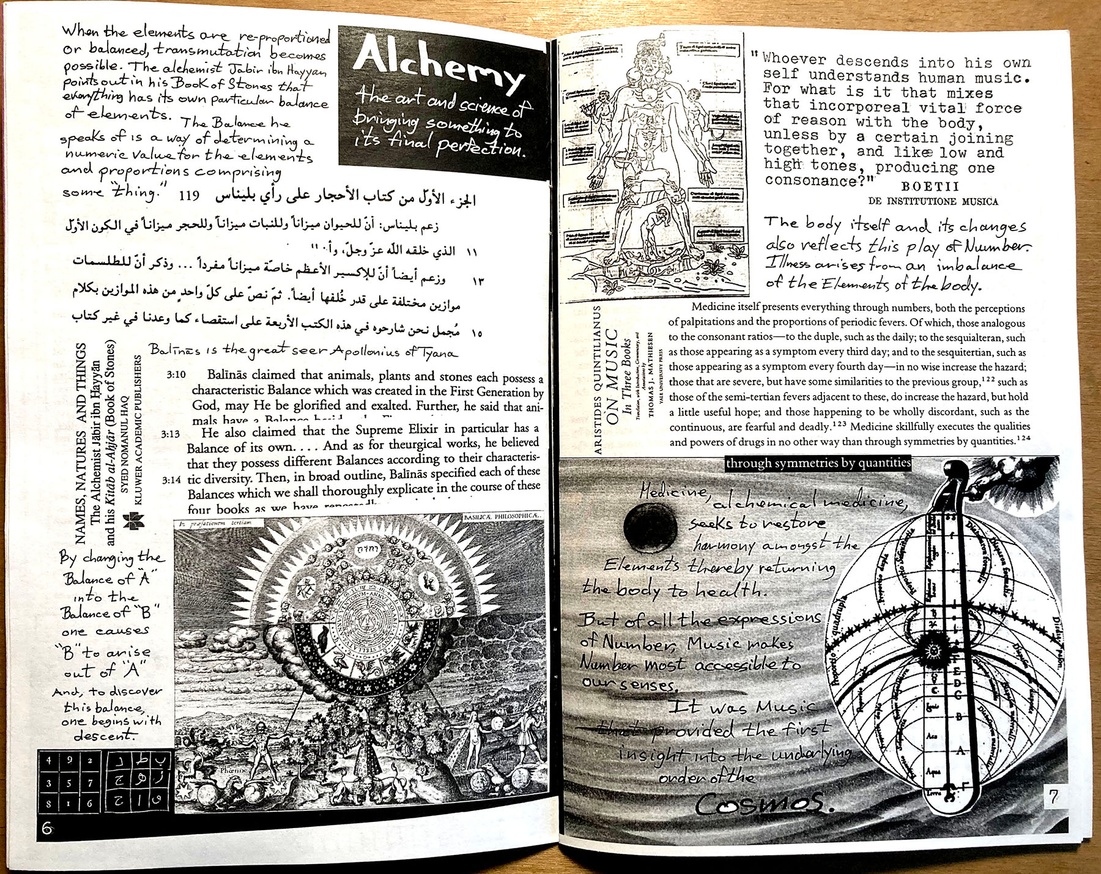 When the elements are re-proportioned
or balanced, transmutation becomes
possible. The alchemist Jabir ibn Hayyan
points out in his Book of Stones that
everything has its own particular balance
of elements. The Balance he
speaks of is a way of determining a
numeric value for the elements
and proportions comprising
some "thing."
Alchemy
the art and science of
bringing something to
its final perfection.
119 الجزء الأوّل من كتاب الأحجار على رأي بليناس
زعم بليناس: أنّ للحيوان ميزاناً وللنبات ميزاناً وللحجر ميزاناً في الكون الأوّل
١١ الذي خلقه الله عزّ وجلّ، وأن
١٣ وزعم أيضاً أنّ للإكسير الأعظم خاصّة ميزاناً مفرداً ... وذكر أنّ للطلسمات
موازين مختلفة على قدر خُلفها أيضاً. ثمّ نصّ على كلّ واحدٍ من هذه الموازين بكلام
١٥ مُجمل نحن شارحوه في هذه الكتب الأربعة على استقصاء كما وعدنا في غير كتاب
Balīnās is the great seer Apollonius of Tyana
NAMES, NATURES AND THINGS
The Alchemist Jābir ibn Hayyān
and his Kitāb al-Aḥjār (Book of Stones)
SYED NOMANUL HAQ
KLUWER ACADEMIC PUBLISHERS
3:10 Balīnās claimed that animals, plants and stones each possess a
characteristic Balance which was created in the First Generation by
God, may He be glorified and exalted. Further, he said that ani-
mals have a Balance
3:13 He also claimed that the Supreme Elixir in particular has a
Balance of its own. . . . And as for theurgical works, he believed
that they possess different Balances according to their characteris-
3:14 tic diversity. Then, in broad outline, Balīnās specified each of these
Balances which we shall thoroughly explicate in the course of these
four books as we have repeatedly
By changing the
Balance of "A"
into the
Balance of "B"
one causes
"B" to arise
out of "A"
And, to discover
this balance,
one begins with
descent.
In præfationem tertiam
BASILICA PHILOSOPHICA.
4 9 2
3 5 7
8 1 6
د ط ب
ج ه ز
ح ا و
6
"Whoever descends into his own
self understands human music.
For what is it that mixes
that incorporeal vital force
of reason with the body,
unless by a certain joining
together, and like low and
high tones, producing one
consonance?"
BOETII
DE INSTITUTIONE MUSICA
The body itself and its changes
also reflects this play of Number.
Illness arises from an imbalance
of the Elements of the body.
ARISTIDES QUINTILIANUS
ON MUSIC
In Three Books
THOMAS J. MATHIESEN
YALE UNIVERSITY PRESS
Medicine itself presents everything through numbers, both the perceptions
of palpitations and the proportions of periodic fevers. Of which, those analogous
to the consonant ratios—to the duple, such as the daily; to the sesquialteran, such
as those appearing as a symptom every third day; and to the sesquitertian, such as
those appearing as a symptom every fourth day—in no wise increase the hazard;
those that are severe, but have some similarities to the previous group,122 such as
those of the semi-tertian fevers adjacent to these, do increase the hazard, but hold
a little useful hope; and those happening to be wholly discordant, such as the
continuous, are fearful and deadly.123 Medicine skillfully executes the qualities
and powers of drugs in no other way than through symmetries by quantities.124
through symmetries by quantities
Medicine, alchemical medicine,
seeks to restore
harmony amongst the
Elements thereby returning
the body to health.
But of all the expressions
of Number, Music makes
Number most accessible to
our senses.
It was Music
that provided the first
insight into the underlying
order of the
Cosmos.
7